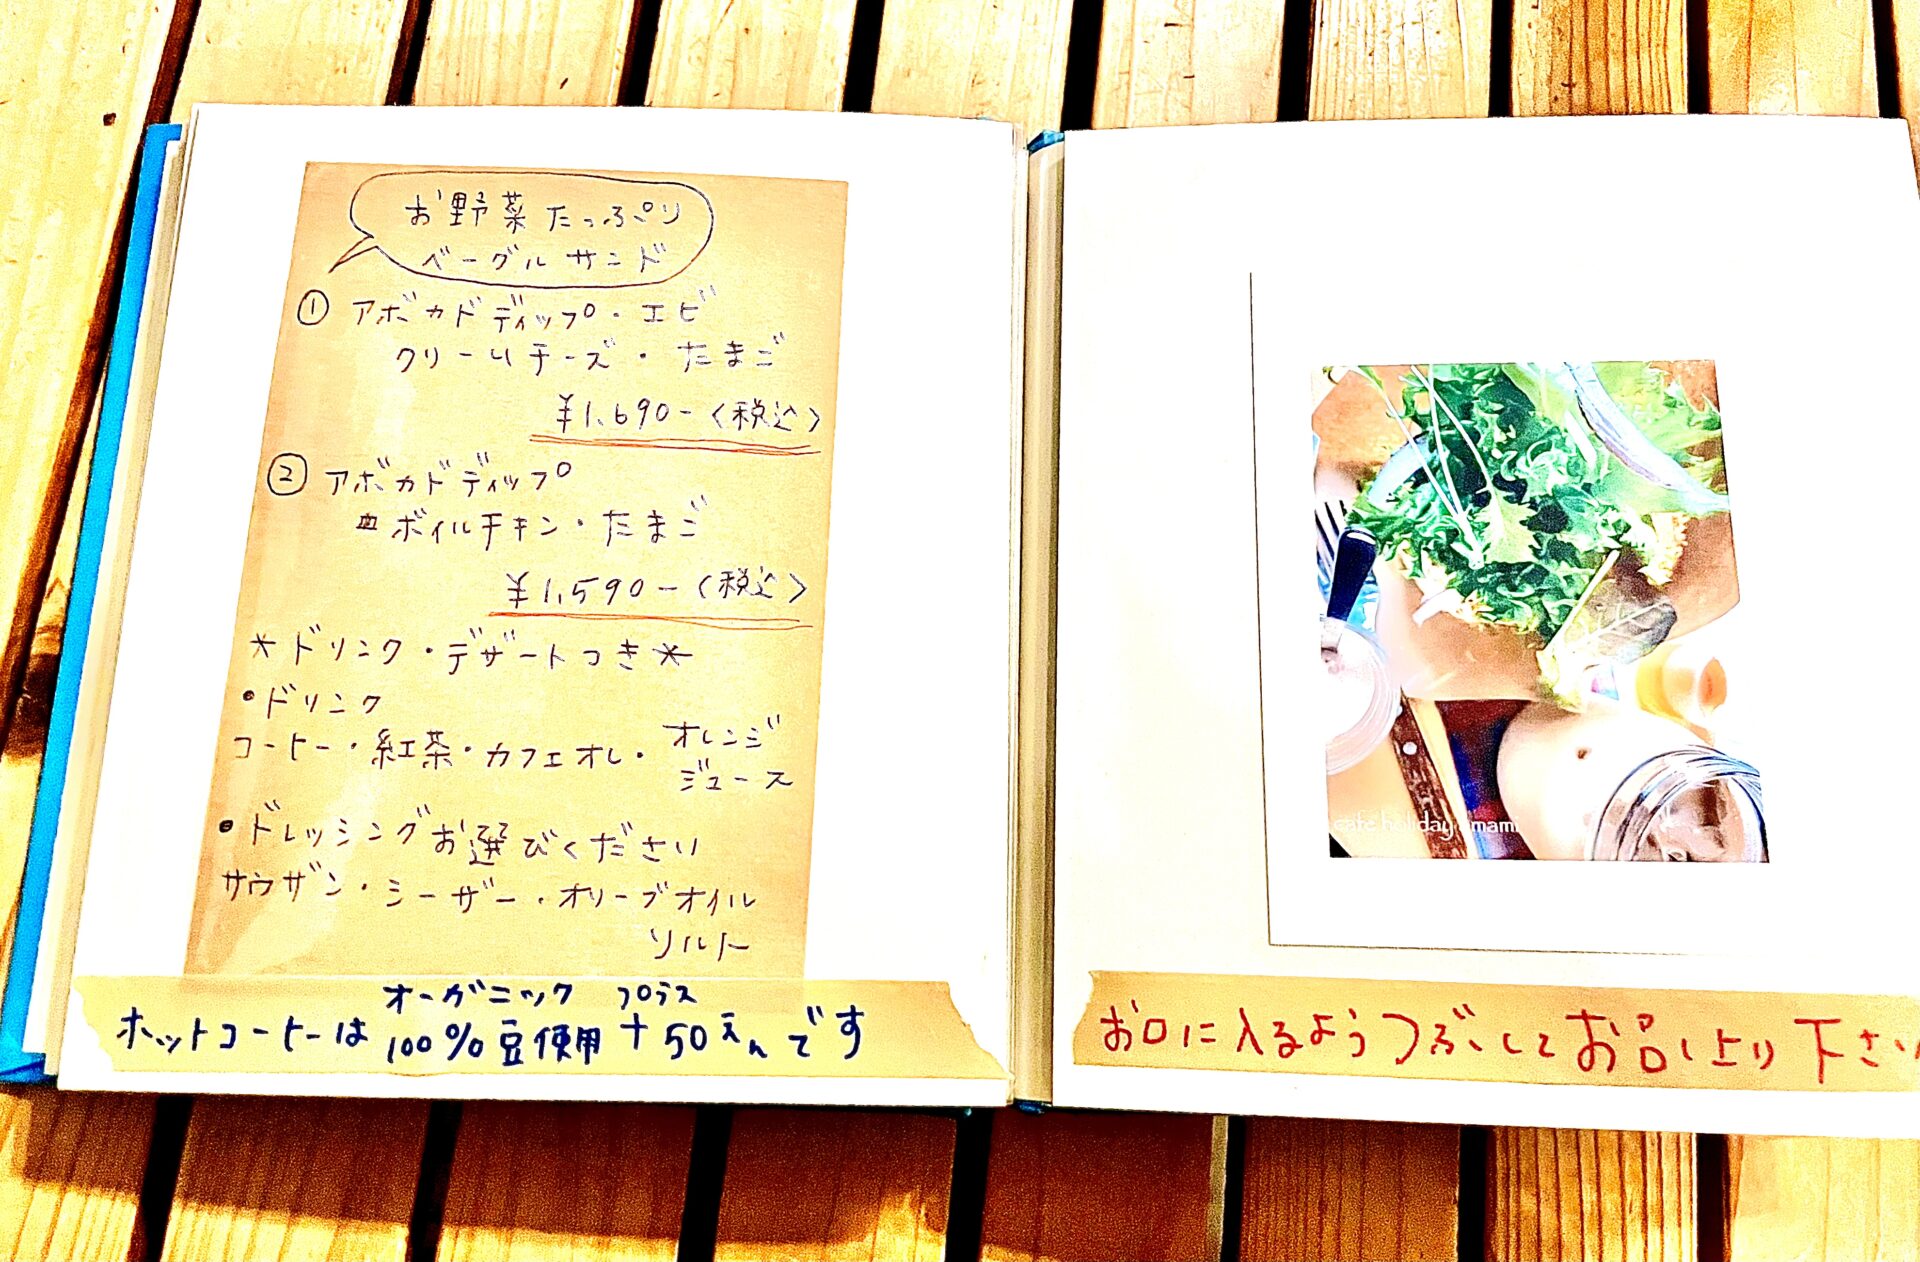 お野菜たっぷり
ベーグルサンド
① アボカドディップ・エビ
クリームチーズ・たまご
¥1,690-〈税込〉
② アボカドディップ
ボイルチキン・たまご
¥1,590-〈税込〉
*ドリンク・デザートつき*
•ドリンク
コーヒー・紅茶・カフェオレ・オレンジ
ジュース
•ドレッシングお選びください
サウザン・シーザー・オリーブオイル
ソルト
オーガニック プラス
ホットコーヒーは100%豆使用+50えんです
お口に入るようつぶしてお召し上り下さい
cafe holiday